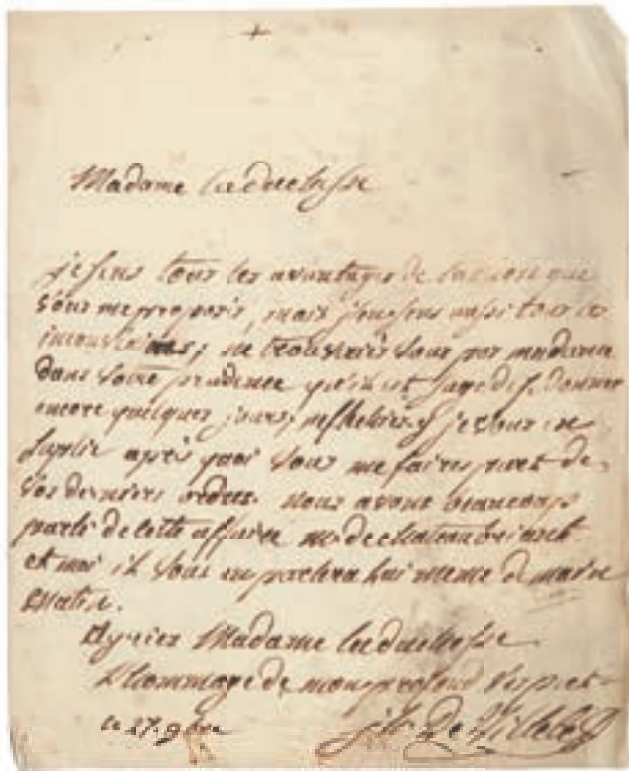 Madame la duchesse
je sens tous les avantages de l'action que
vous me proposés, mais j'en sens aussi tous les
inconveniens; ne trouveries vous pas madame
dans votre prudence qu'il est sage de se donner
encore quelques jours; reflechises y je vous en
suplie après quoi vous me faires part de
vos derniers ordres. nous avons beaucoup
parlé de cette affaire mr de chateaubriant
et moi il vous en parlera lui meme demain
matin.
Agreez Madame la duchesse
L'hommage de mon profond respect
le 27. 9bre
jh. De Villele